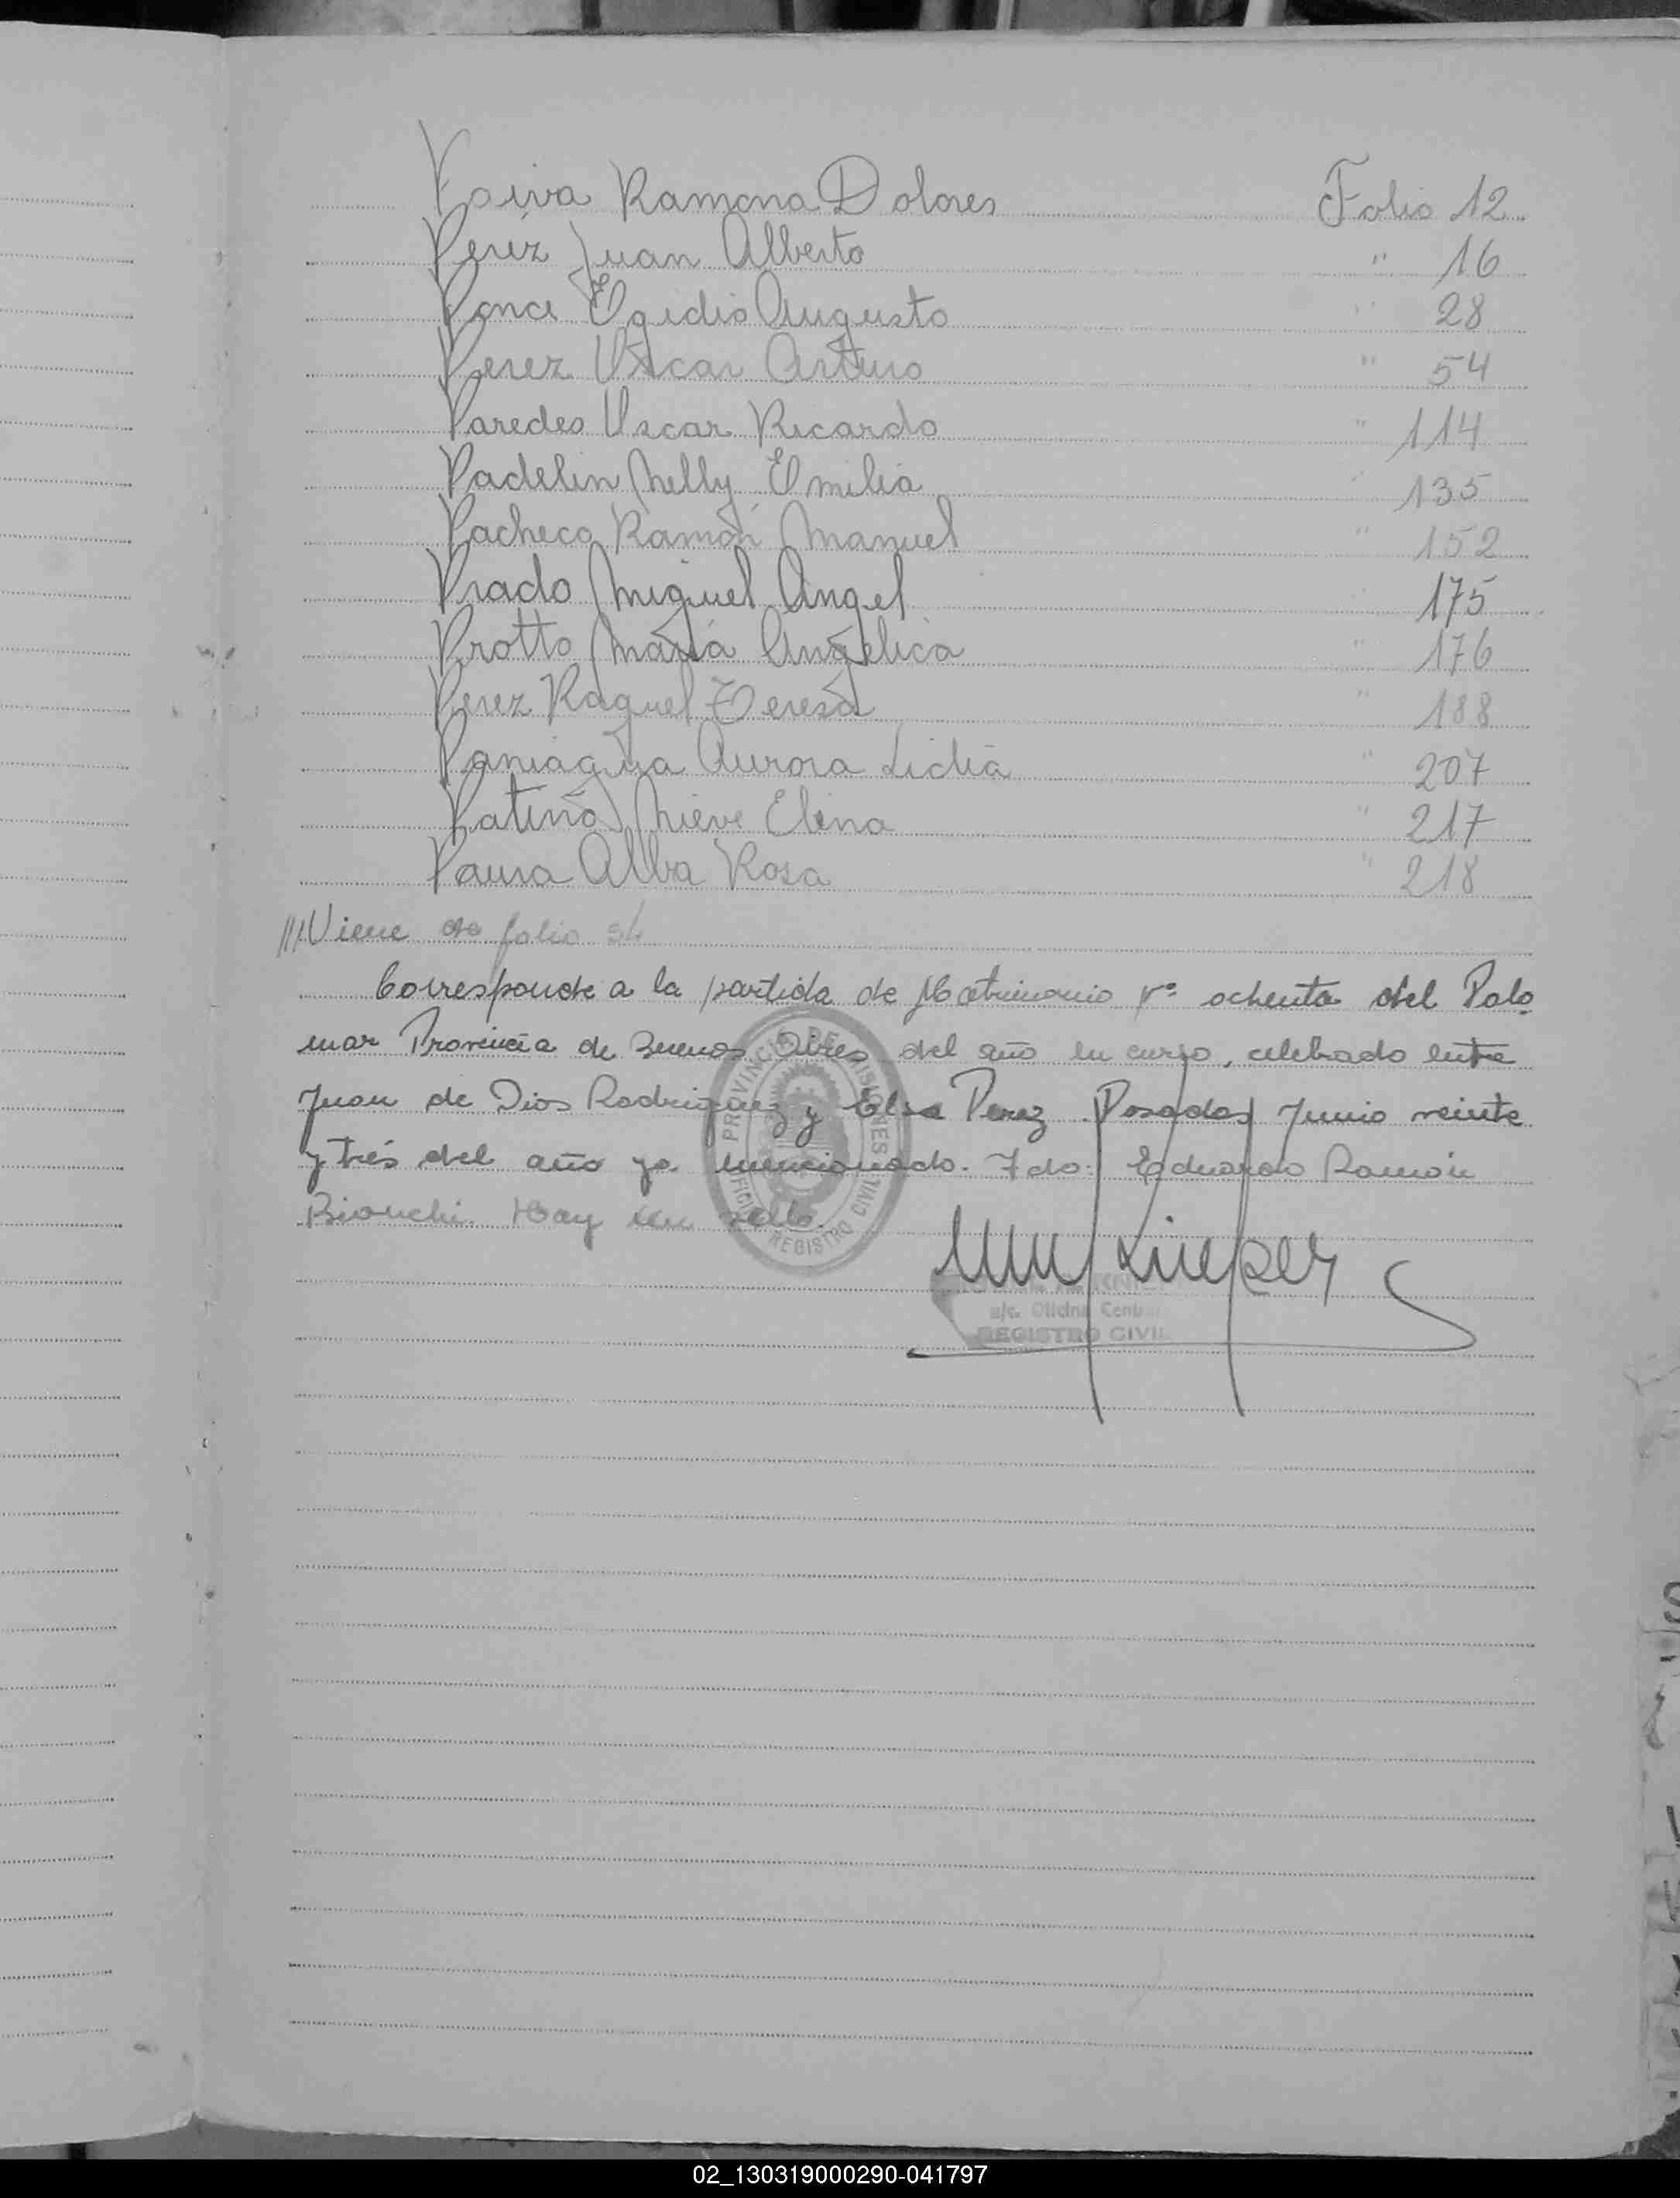 Paiva Ramona Dolores Folio 12
Perez Juan Alberto " 16
Ponce Egidio Augusto " 28
Perez Oscar Arturo " 54
Paredes Oscar Ricardo " 114
Padelin Nelly Emilia " 135
Pacheco Ramón Manuel " 152
Prado Miguel Angel " 175
Protto María Angelica " 176
Perez Raquel Teresa " 188
Paniagua Aurora Lidia " 207
Patiño Nieve Elena " 217
Paura Alba Rosa " 218
///Viene de folio 54
Corresponde a la partida de Matrimonio Nº ochenta del Palo
mar Provincia de Buenos Aires del año en curso, celebrado entre
Juan de Dios Rodriguez y Elsa Perez. Posadas, Junio veinte
y trés del año ya mencionado. Fdo: Eduardo Ramón
Bianchi. Hay un sello.
PROVINCIA DE MISIONES
REGISTRO CIVIL
a/c. Oficina Central
REGISTRO CIVIL
02_130319000290-041797